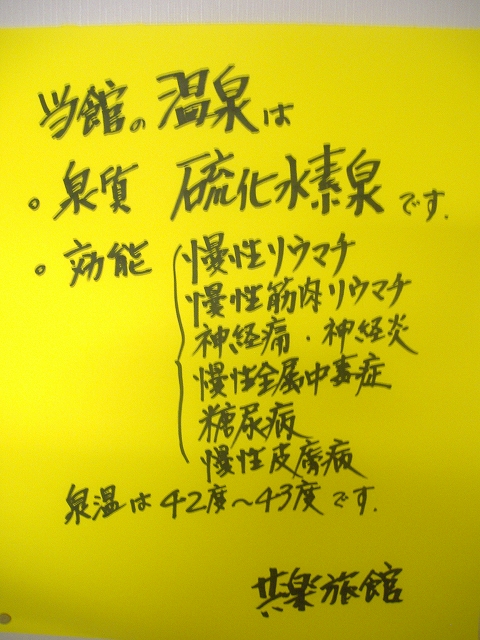 当館の温泉は
。泉質 硫化水素泉です.
。効能 慢性リウマチ
慢性筋肉リウマチ
神経痛.神経炎
慢性金属中毒症
糖尿病
慢性皮膚病
泉温は42度～43度です.
共楽旅館